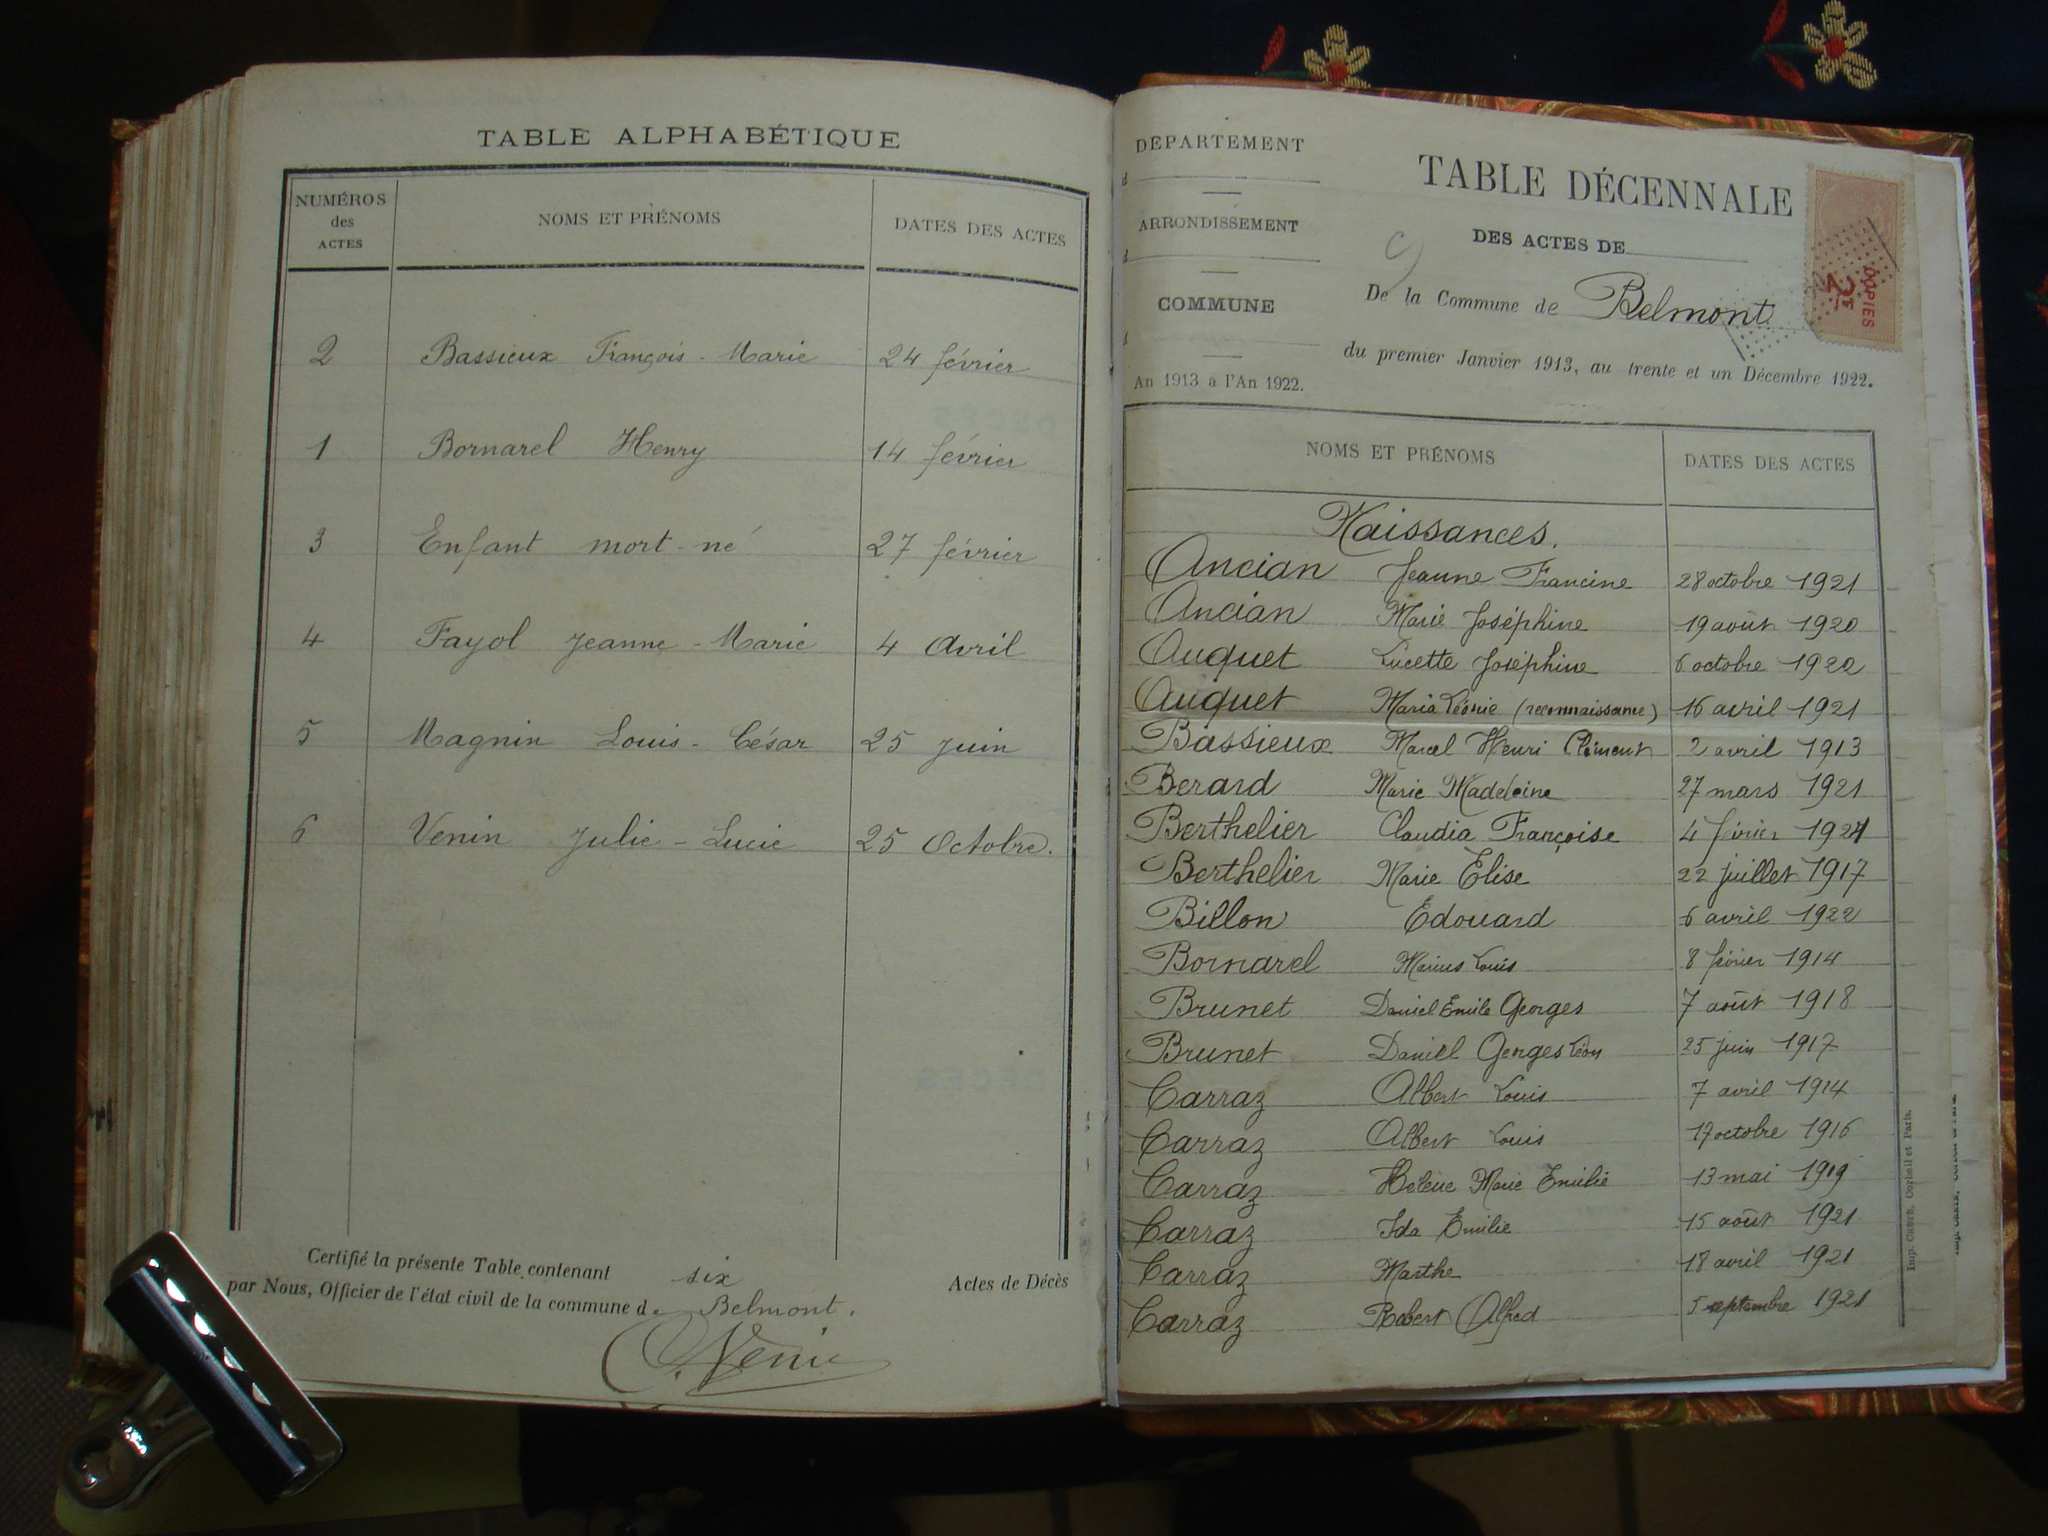 TABLE ALPHABÉTIQUE
NUMÉROS des ACTES NOMS ET PRÉNOMS DATES DES ACTES
2 Bassieux François-Marie 24 février
1 Bornarel Henry 14 février
3 Enfant mort-né 27 février
4 Fayol Jeanne-Marie 4 Avril
5 Magnin Louis-César 25 juin
6 Venin Julie-Lucie 25 Octobre.
Certifié la présente Table contenant six Actes de Décès
par Nous, Officier de l'état civil de la commune de Belmont.
Venin
DEPARTEMENT
d
ARRONDISSEMENT
d
COMMUNE
d
An 1913 à l'An 1922.
TABLE DÉCENNALE
DES ACTES DE
De la Commune de Belmont
du premier Janvier 1913, au trente et un Décembre 1922.
COPIES
2F
NOMS ET PRÉNOMS DATES DES ACTES
Naissances.
Ancian Jeanne Francine 28 octobre 1921
Ancian Marie Joséphine 19 août 1920
Auquet Lucette Joséphine 6 octobre 1920
Auquet Maria Léonie (reconnaissance) 16 avril 1921
Bassieux Marcel Henri Clément 2 avril 1913
Berard Marie Madeleine 27 mars 1921
Berthelier Claudia Françoise 4 février 1921
Berthelier Marie Elise 22 juillet 1917
Billon Edouard 6 avril 1922
Bornarel Marius Louis 8 février 1914
Brunet Daniel Emile Georges 7 août 1918
Brunet Daniel Georges Léon 25 juin 1917
Carraz Albert Louis 7 avril 1914
Carraz Albert Louis 17 octobre 1916
Carraz Hélène Marie Emilie 13 mai 1919
Carraz Ida Emilie 15 août 1921
Carraz Marthe 18 avril 1921
Carraz Robert Alfred 5 septembre 1921